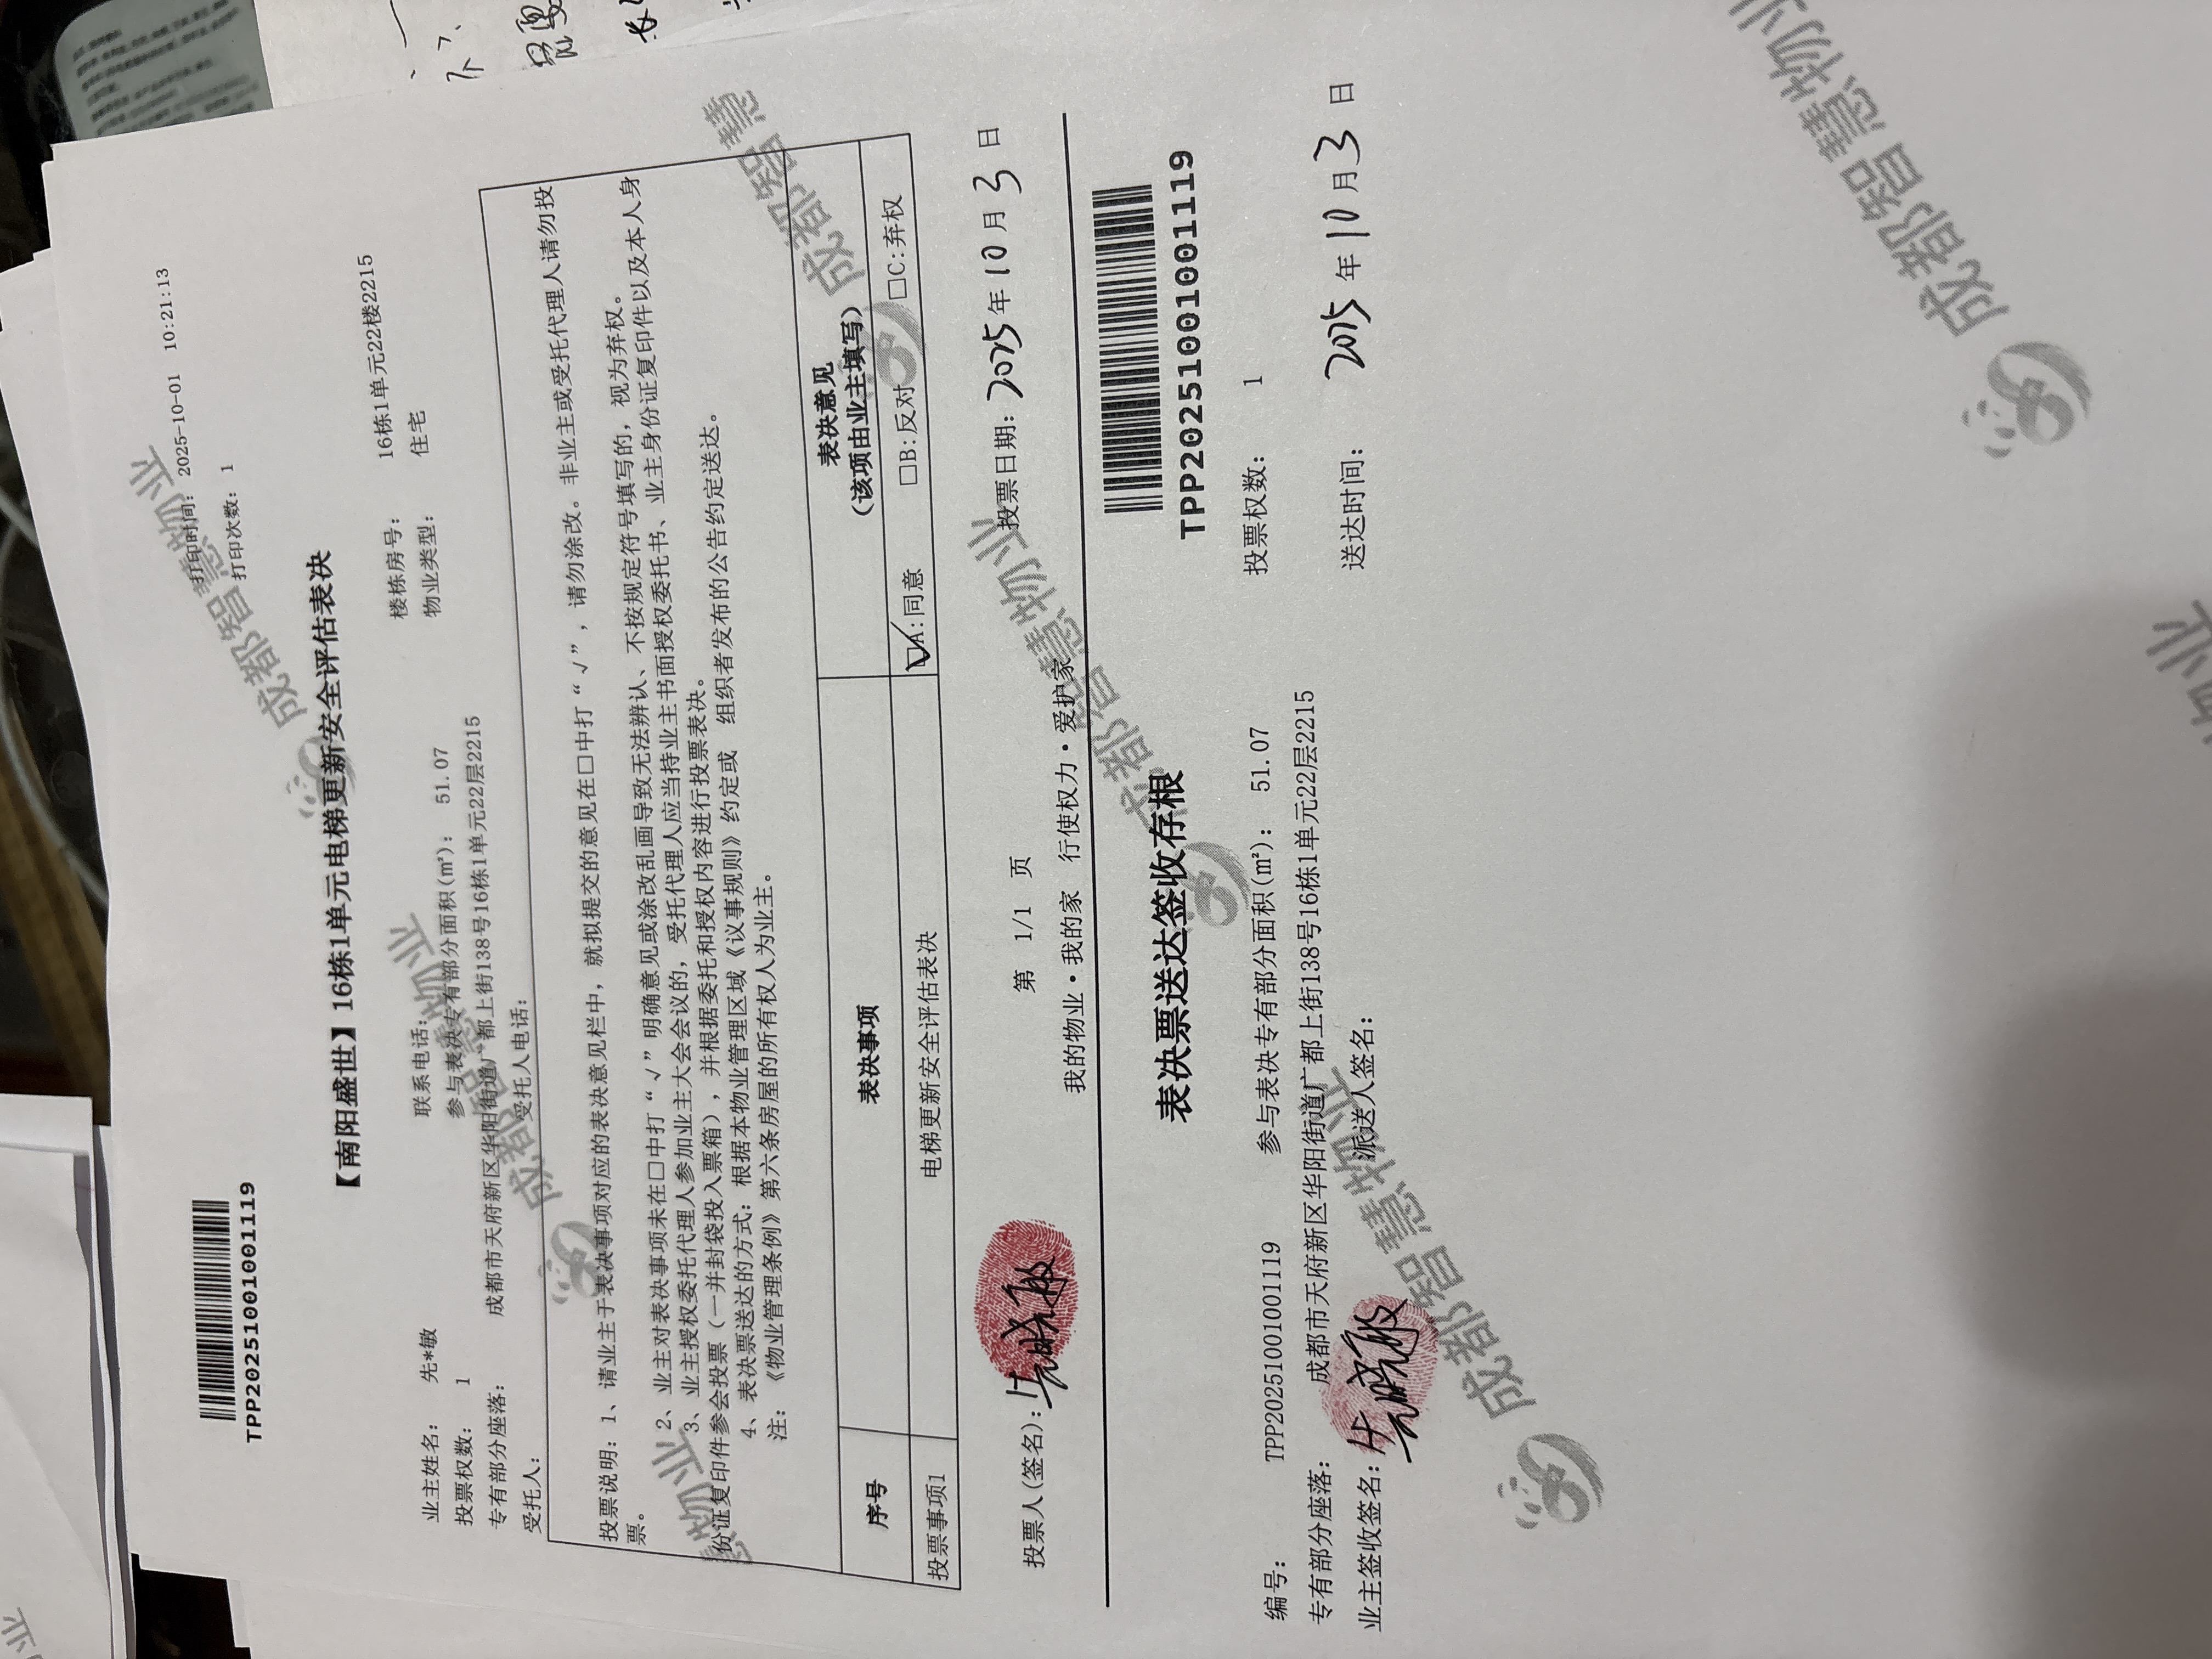 TPP20251001001119
打印时间: 2025-10-01 10:21:13
打印次数: 1
【南阳盛世】16栋1单元电梯更新安全评估表决
业主姓名: 先*敏 联系电话: 楼栋房号: 16栋1单元22楼2215
投票权数: 1 参与表决专有部分面积(㎡): 51.07 物业类型: 住宅
专有部分座落: 成都市天府新区华阳街道广都上街138号16栋1单元22层2215
受托人: 受托人电话:
投票说明: 1、请业主于表决事项对应的表决意见栏中, 就拟提交的意见在□中打“√”, 请勿涂改。非业主或受托代理人请勿投
票。
2、业主对表决事项未在□中打“√”明确意见或涂改乱画导致无法辨认、不按规定符号填写的, 视为弃权。
3、业主授权委托代理人参加业主大会会议的, 受托代理人应当持业主书面授权委托书、业主身份证复印件以及本人身
份证复印件参会投票(一并封袋投入票箱), 并根据委托和授权内容进行投票表决。
4、表决票送达的方式: 根据本物业管理区域《议事规则》约定或 组织者发布的公告约定送达。
注: 《物业管理条例》第六条房屋的所有权人为业主。
序号 表决事项 表决意见
(该项由业主填写)
投票事项1 电梯更新安全评估表决 ☑A:同意 □B:反对 □C:弃权
投票人(签名): 先晓敏 第 1/1 页 投票日期: 2025年10月3日
我的物业·我的家 行使权力·爱护家
表决票送达签收存根
TPP20251001001119
编号: TPP20251001001119 参与表决专有部分面积(㎡): 51.07 投票权数: 1
专有部分座落: 成都市天府新区华阳街道广都上街138号16栋1单元22层2215
业主签收签名: 先晓敏 派送人签名: 送达时间: 2025年10月3日
成都智慧物业
成都智慧物业
慧物业
成都智慧
成都智慧物业
成都智慧物业
成都智慧物业
物业